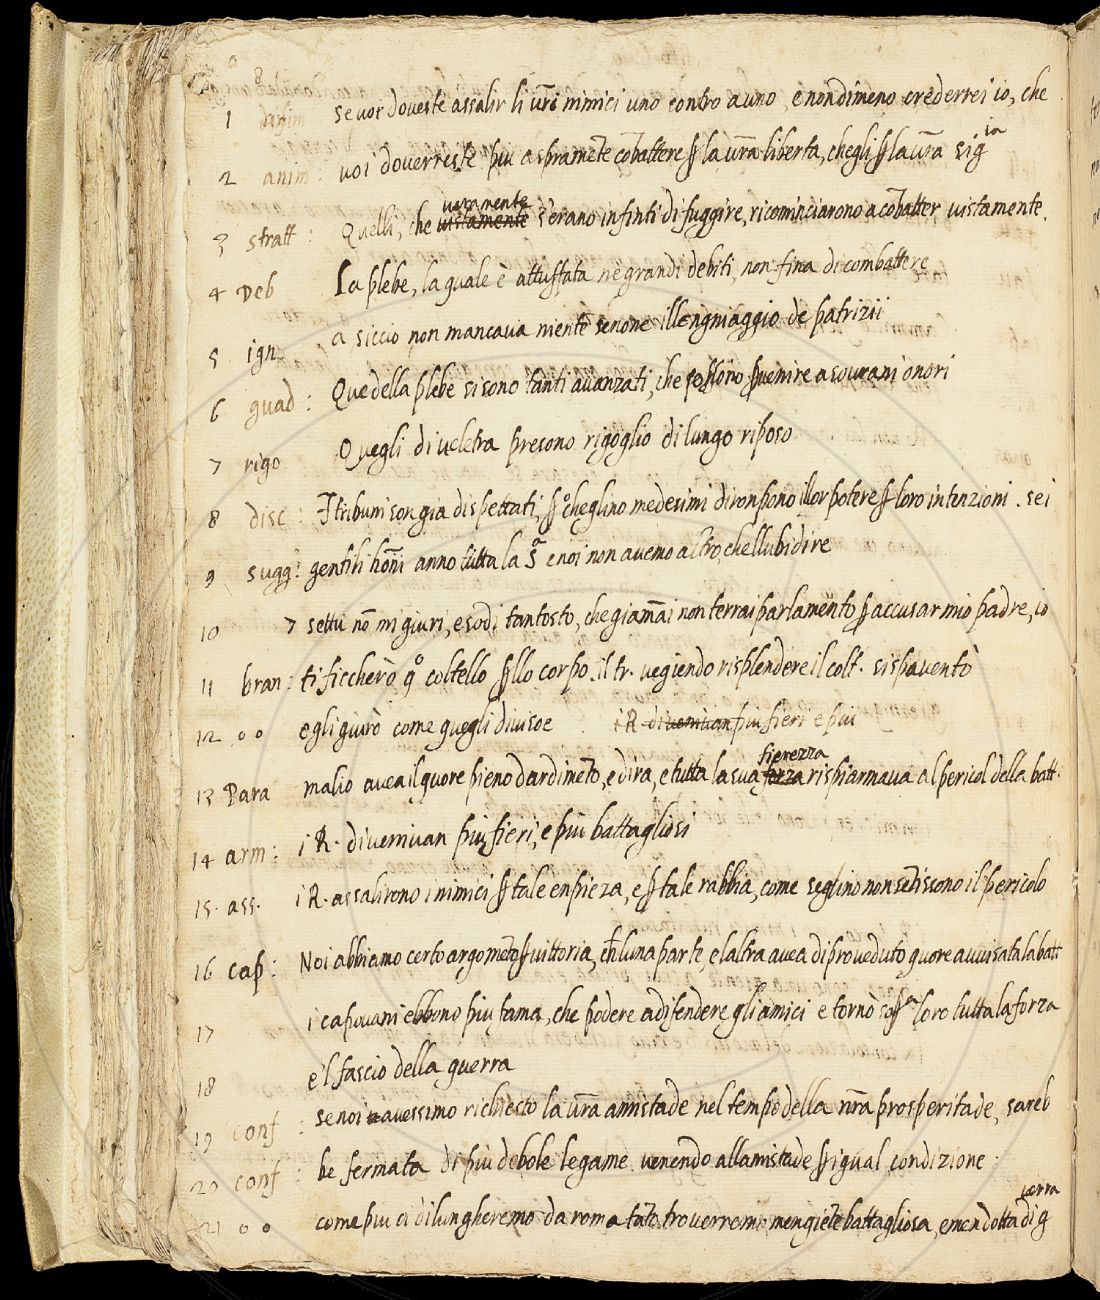 1 anim se voi doveste assalir li vr̃i nimici uno contro a uno, e nondimeno crederrei io, che
2 anim: voi doverreste piu aspramẽte cõbattere ꝑ la vr̃a liberta, chegli ꝑ la vr̃a sigia
3 stratt: Quelli, che vistamente veramente s'erano infinti di fuggire, ricominciarono a cõbatter vistamente.
4 Deb La plebe, laquale è attuffata ne grandi debiti, non fina di combattere
5 ign a siccio non mancava niente senone illengniaggio de patrizii
6 guad: Que della plebe si sono tanti avanzati, che possono ꝑvenire a sovrani onori
7 rigo Quegli di veletra presono rigoglio di lungo riposo
8 disc: I tribuni son gia dispettati, ꝑo cheglino medesimi dironpono illor potere ꝑ loro intenzioni. se i
9 sugg: gentili hõni anno tutta la Sa e noi non avemo altro, chellubidire
10 7 settu nõ mi giuri, e sodi tantosto, che giamãi non terrai parlamento ꝑ accusar mio padre, io
11 bran: ti ficcherò qo coltello ꝑllo corpo. il tr. vegiendo risplendere il colt. si spaventò
12 o o egli giurò come quegli divisoe i R divenivan piu fieri e piu
13 Para malio avea il quore pieno dardimẽto, e dira, e tutta la sua forza fierezza rispiarmava al pericol della batt.
14 arm: i R. divenivan piu fieri, e piu battagliosi
15. ass. i R. assalirono i nimici ꝑ tale enpieza, e ꝑ tale rabbia, come seglino non sẽtissono il pericolo
16 cap: Noi abbiamo certo argomẽto ꝑ vittoria, ch̃ luna parte, e laltra avea di proveduto quore avvisata la batt
17 i capovani ebbono piu fama, che podere a difendere gli amici e tornò soꝑa loro tutta la forza
18 e'l fascio della guerra
19 conf: se noi avessimo richiesto la vr̃a amistade nel tempo della nr̃a prosperitade, sareb
20 conf: be fermata di piu debole legame. venendo allamistade ꝑ igual condizione.
21 o o come piu ci dilungheremo da roma tãto troverremo men giẽte battagliosa, e men dotta di guerra